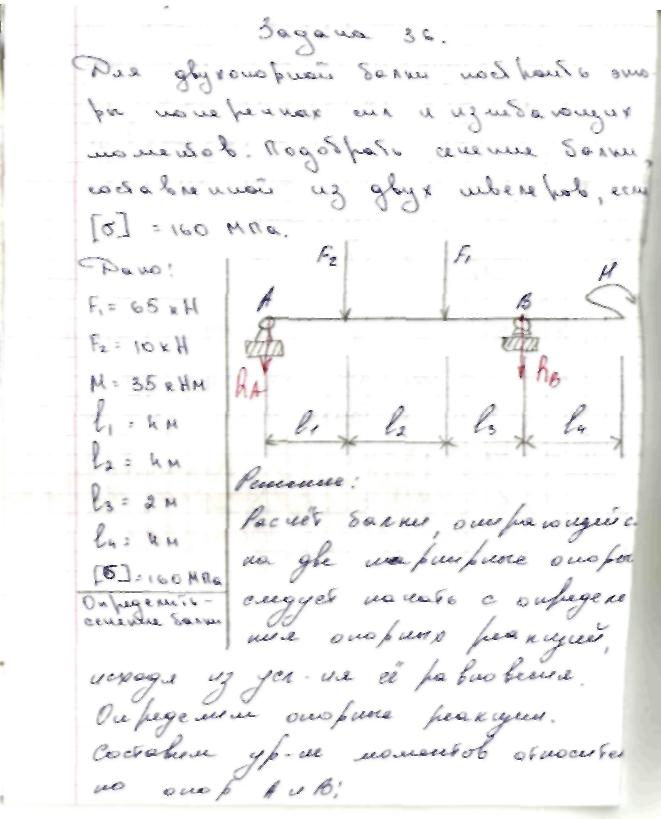 Задача 36.
Для двухопорной балки построить эпю-
ры поперечных сил и изгибающих
моментов. Подобрать сечение балки,
составленной из двух швелеров, если
[σ] = 160 МПа.
Дано:
F₁ = 65 кН
F₂ = 10 кН
M = 35 кНм
l₁ = 4 м
l₂ = 4 м
l₃ = 2 м
l₄ = 4 м
[σ] = 160 МПа
Определить -
сечение балки
F₂ F₁ M
A B
RA RB
l₁ l₂ l₃ l₄
Решение:
Расчёт балки, опирающейся
на две шарнирные опоры
следует начать с определе
ния опорных реакций,
исходя из усл-ия её равновесия.
Определим опорные реакции.
Составим ур-ие моментов относите
но опор А и В: